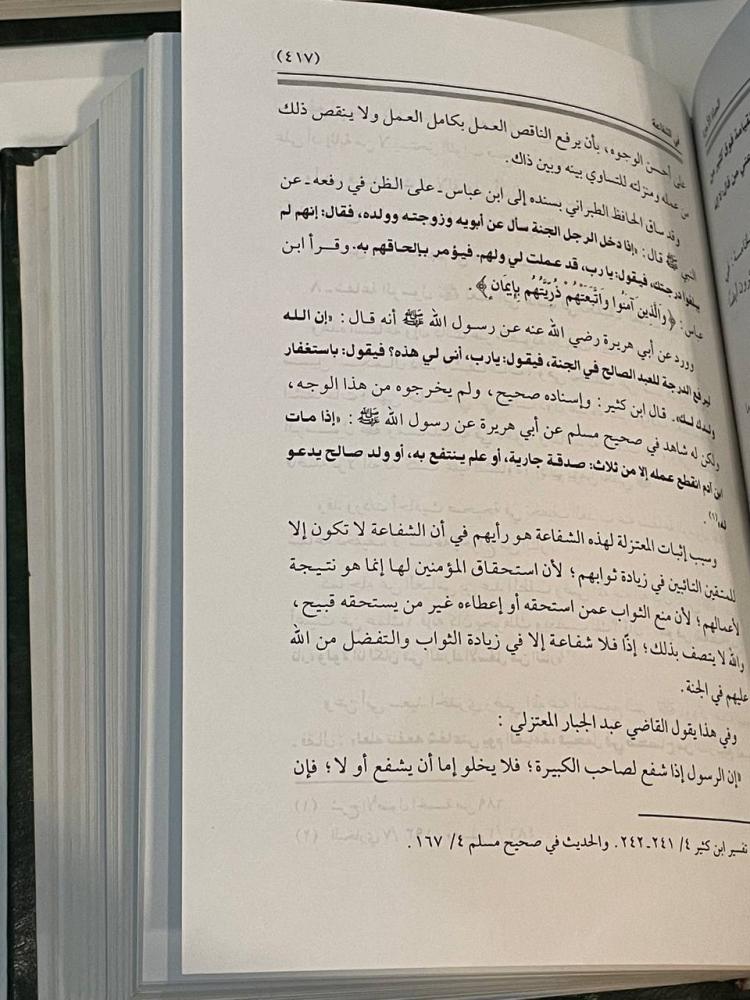 (٤١٧)
في الشفاعة
على أحسن الوجوه، بأن يرفع الناقص العمل بكامل العمل ولا ينقص ذلك
من عمله ومنزلته للتساوي بينه وبين ذاك.
وقد ساق الحافظ الطبراني بسنده إلى ابن عباس ـ على الظن في رفعه ـ عن
النبي ﷺ قال: «إذا دخل الرجل الجنة سأل عن أبويه وزوجته وولده، فقال: إنهم لم
يبلغوا درجتك، فيقول: يا رب، قد عملت لي ولهم. فيؤمر بإلحاقهم به. وقرأ ابن
عباس: ﴿وَالَّذِينَ آمَنُوا وَاتَّبَعَتْهُمْ ذُرِّيَّتُهُم بِإِيمَانٍ﴾.
وورد عن أبي هريرة رضي الله عنه عن رسول الله ﷺ أنه قال: «إن الله
ليرفع الدرجة للعبد الصالح في الجنة، فيقول: يارب، أنى لي هذه؟ فيقول: باستغفار
ولدك لك». قال ابن كثير: وإسناده صحيح، ولم يخرجوه من هذا الوجه،
ولكن له شاهد في صحيح مسلم عن أبي هريرة عن رسول الله ﷺ: «إذا مات
ابن آدم انقطع عمله إلا من ثلاث: صدقة جارية، أو علم ينتفع به، أو ولد صالح يدعو
له»(١).
وسبب إثبات المعتزلة لهذه الشفاعة هو رأيهم في أن الشفاعة لا تكون إلا
للمتقين التائبين في زيادة ثوابهم؛ لأن استحقاق المؤمنين لها إنما هو نتيجة
لأعمالهم؛ لأن منع الثواب عمن استحقه أو إعطاءه غير من يستحقه قبيح،
والله لا يتصف بذلك؛ إذًا فلا شفاعة إلا في زيادة الثواب والتفضل من الله
عليهم في الجنة.
وفي هذا يقول القاضي عبد الجبار المعتزلي:
«إن الرسول إذا شفع لصاحب الكبيرة؛ فلا يخلو إما أن يشفع أو لا؛ فإن
تفسير ابن كثير ٤/ ٢٤١ـ٢٤٢. والحديث في صحيح مسلم ٤/ ١٦٧.